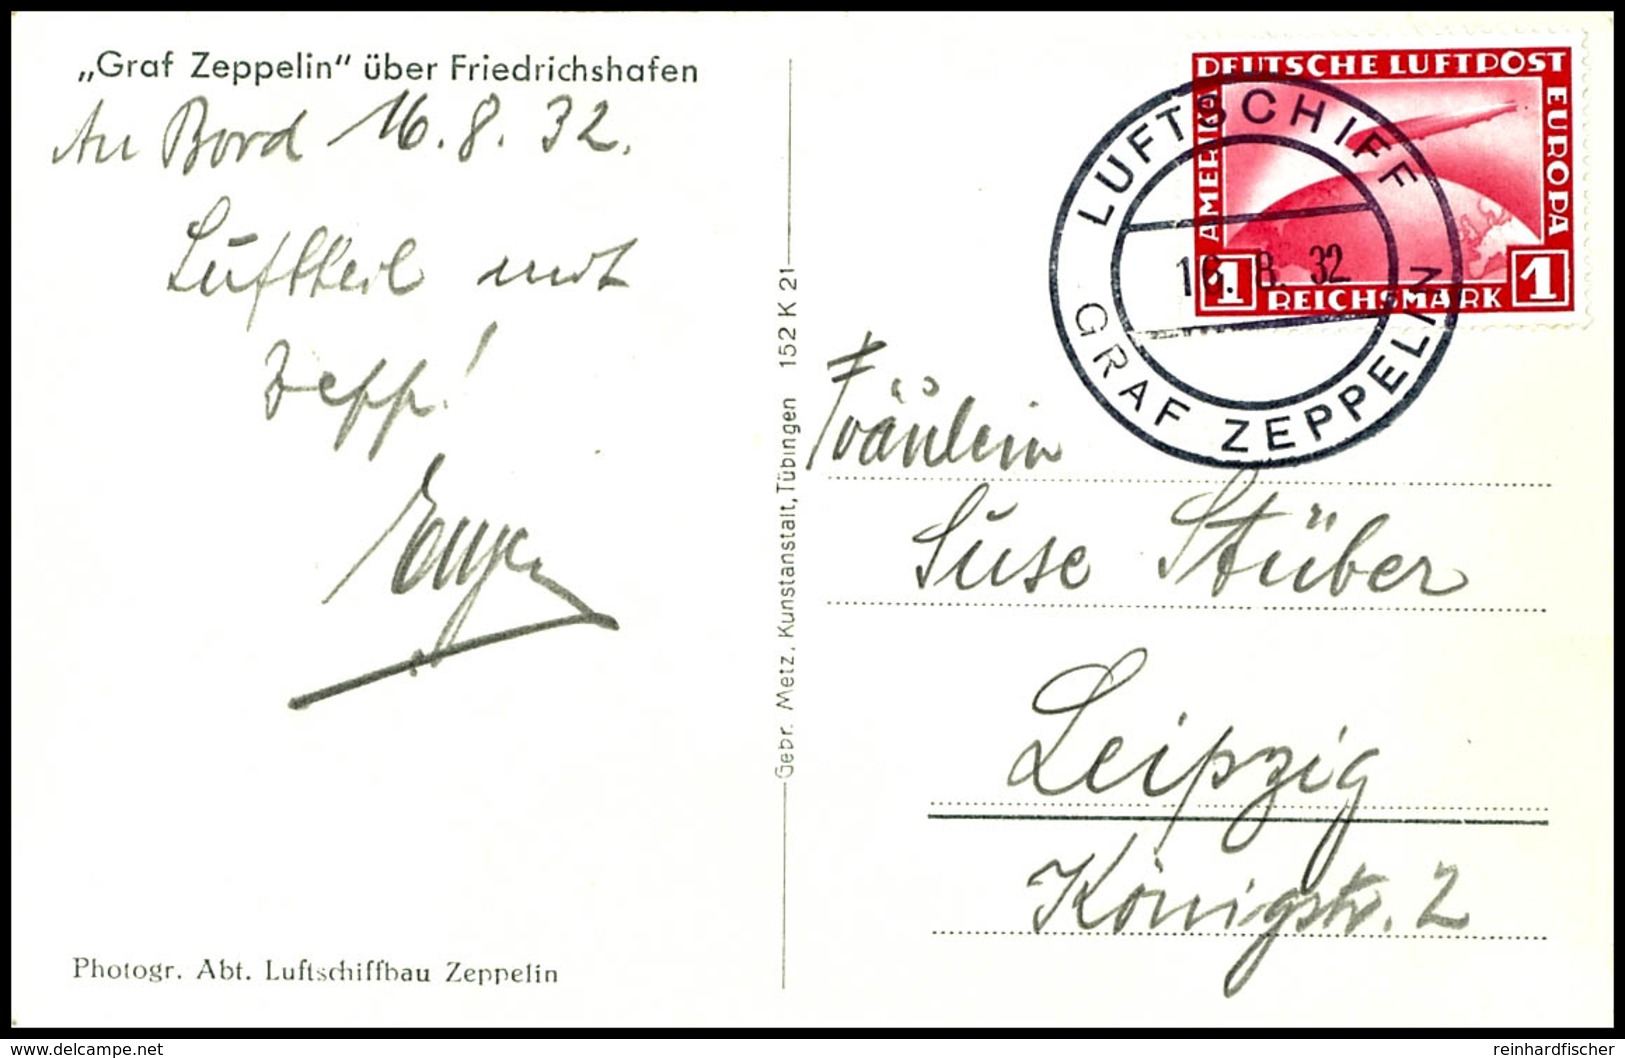 „Graf Zeppelin" über Friedrichshafen
An Bord 16.8.32.
Luftheil mit
Zepp!
Photogr. Abt. Luftschiffbau Zeppelin
Gebr. Metz, Kunstanstalt, Tübingen 152 K 21
DEUTSCHE LUFTPOST
EUROPA
AMERIKA
1 REICHSMARK 1
LUFTSCHIFF
16. 8. 32
GRAF ZEPPELIN
Fräulein
Suse Stüber
Leipzig
Königstr. 2
delcampe.net
reinhardfischer